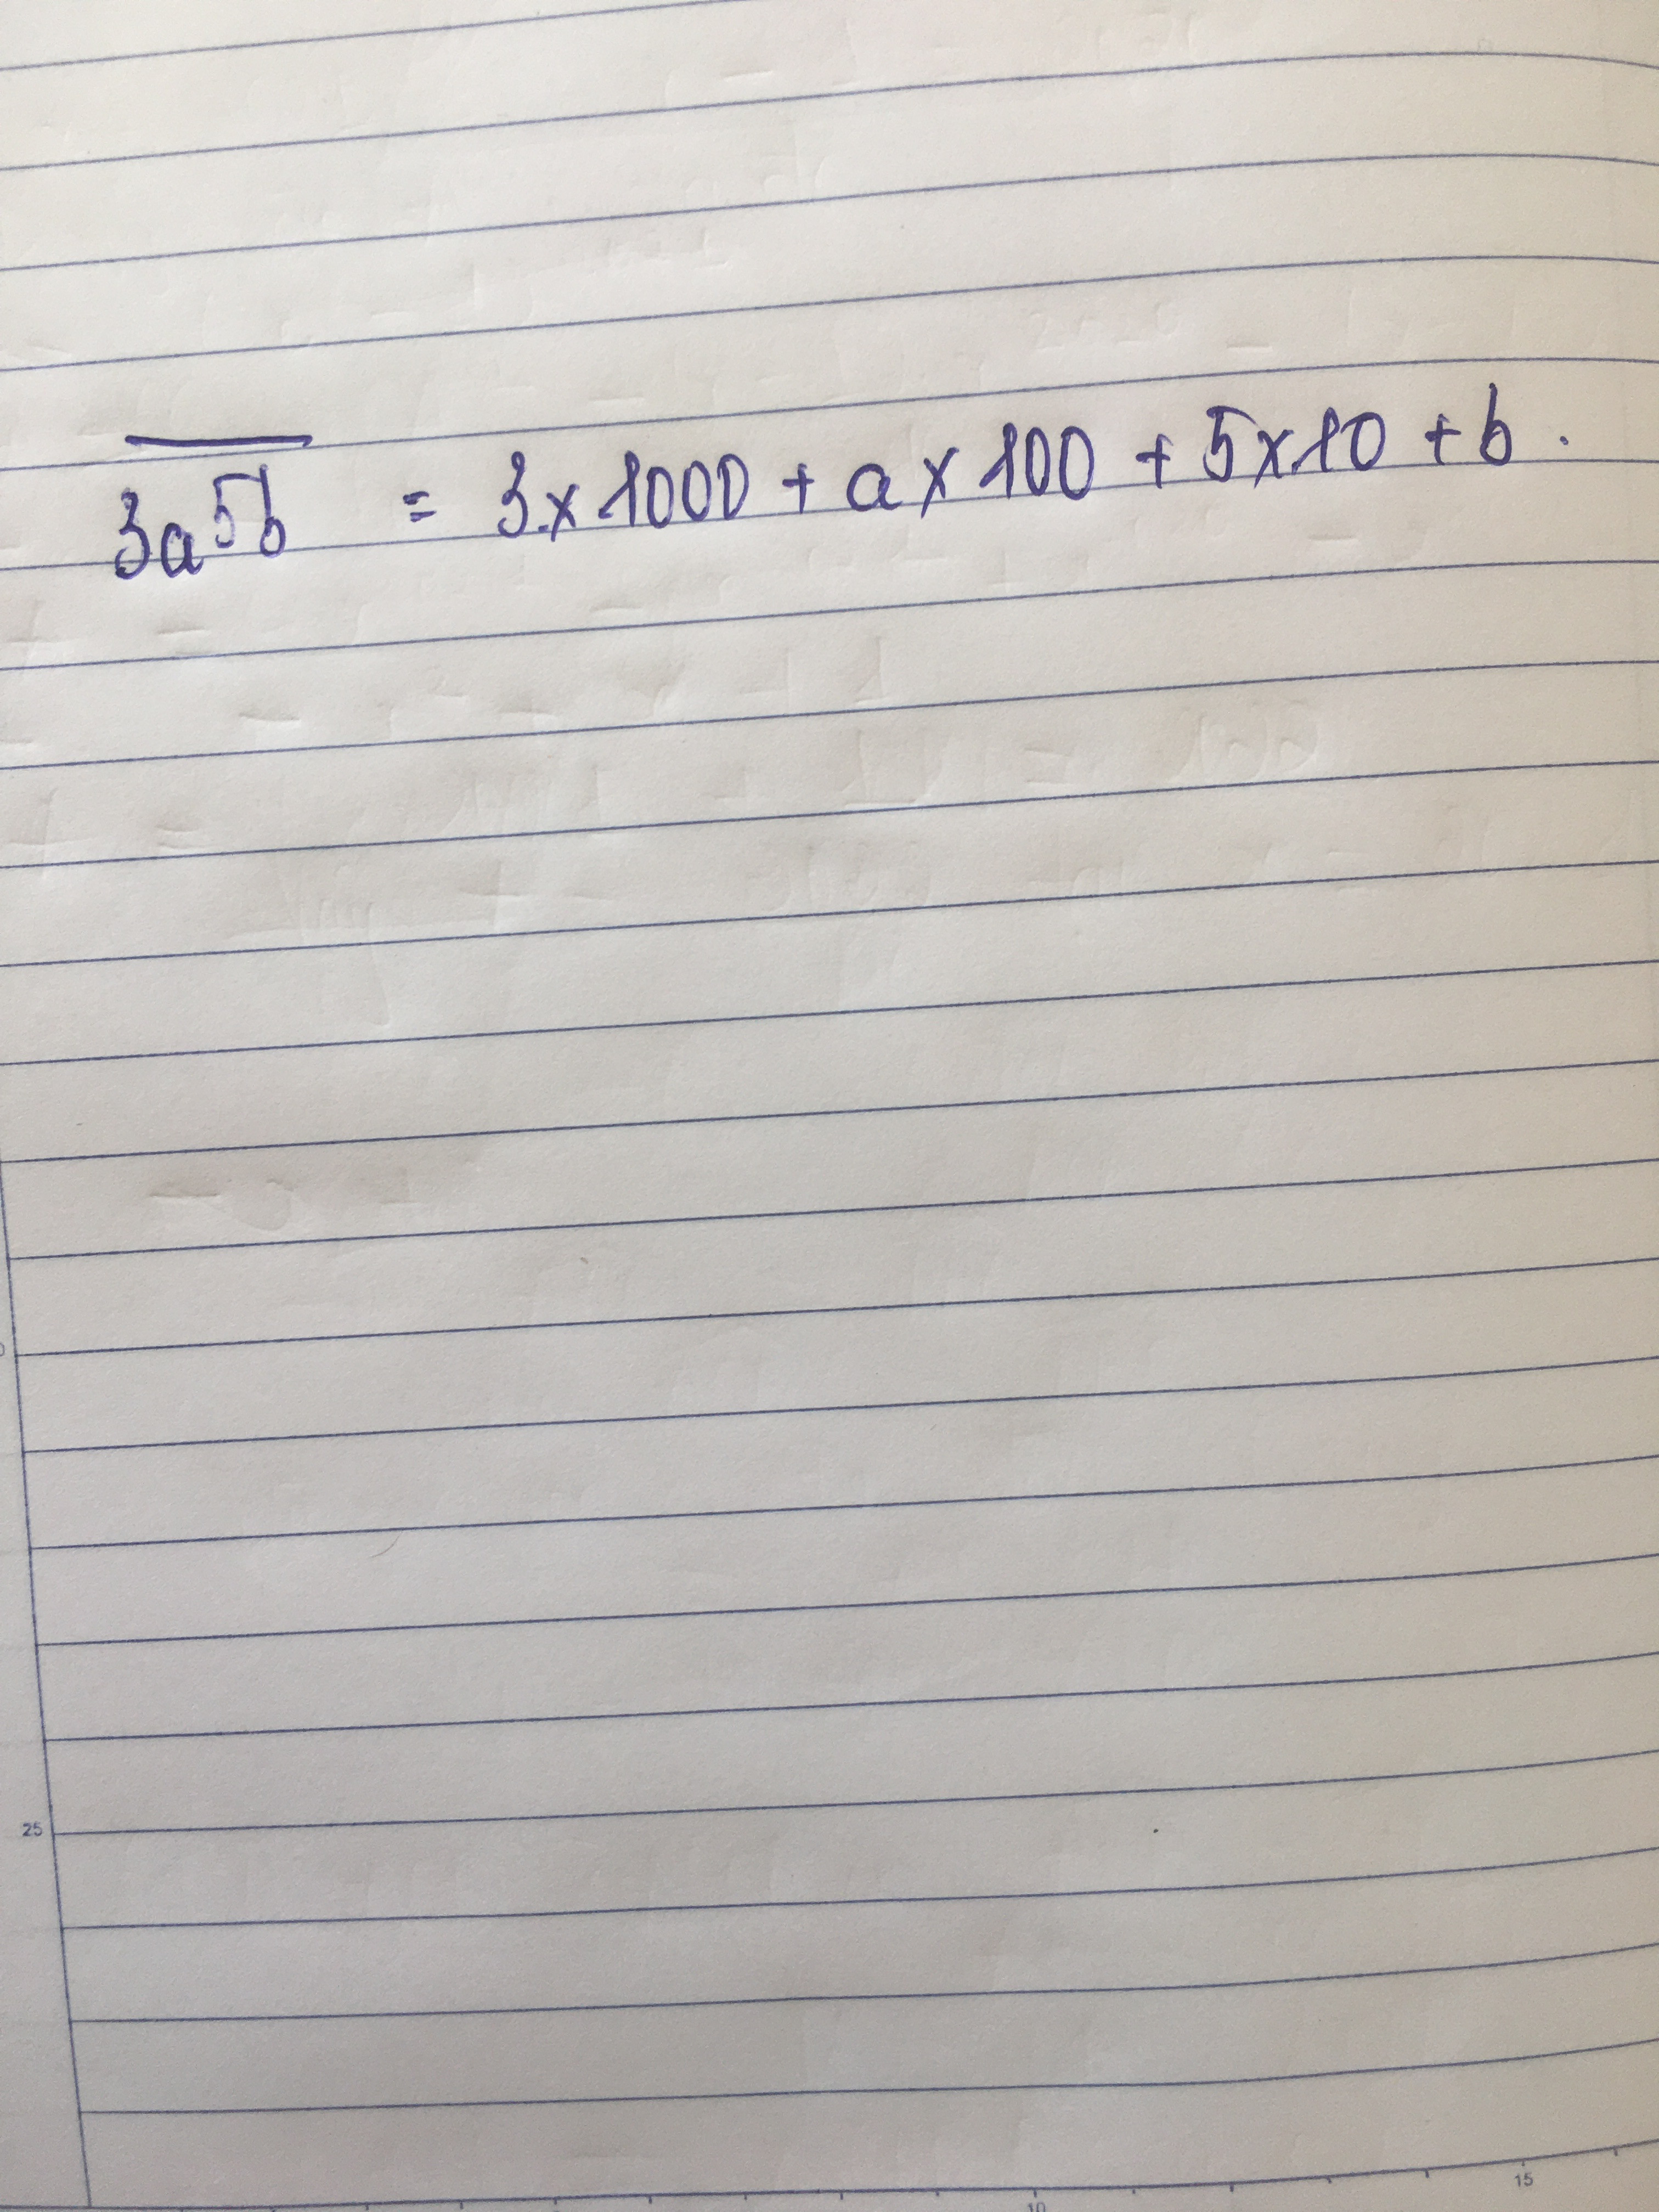 3a5b = 3 x 1000 + a x 100 + 5 x 10 + b.
25
10
15